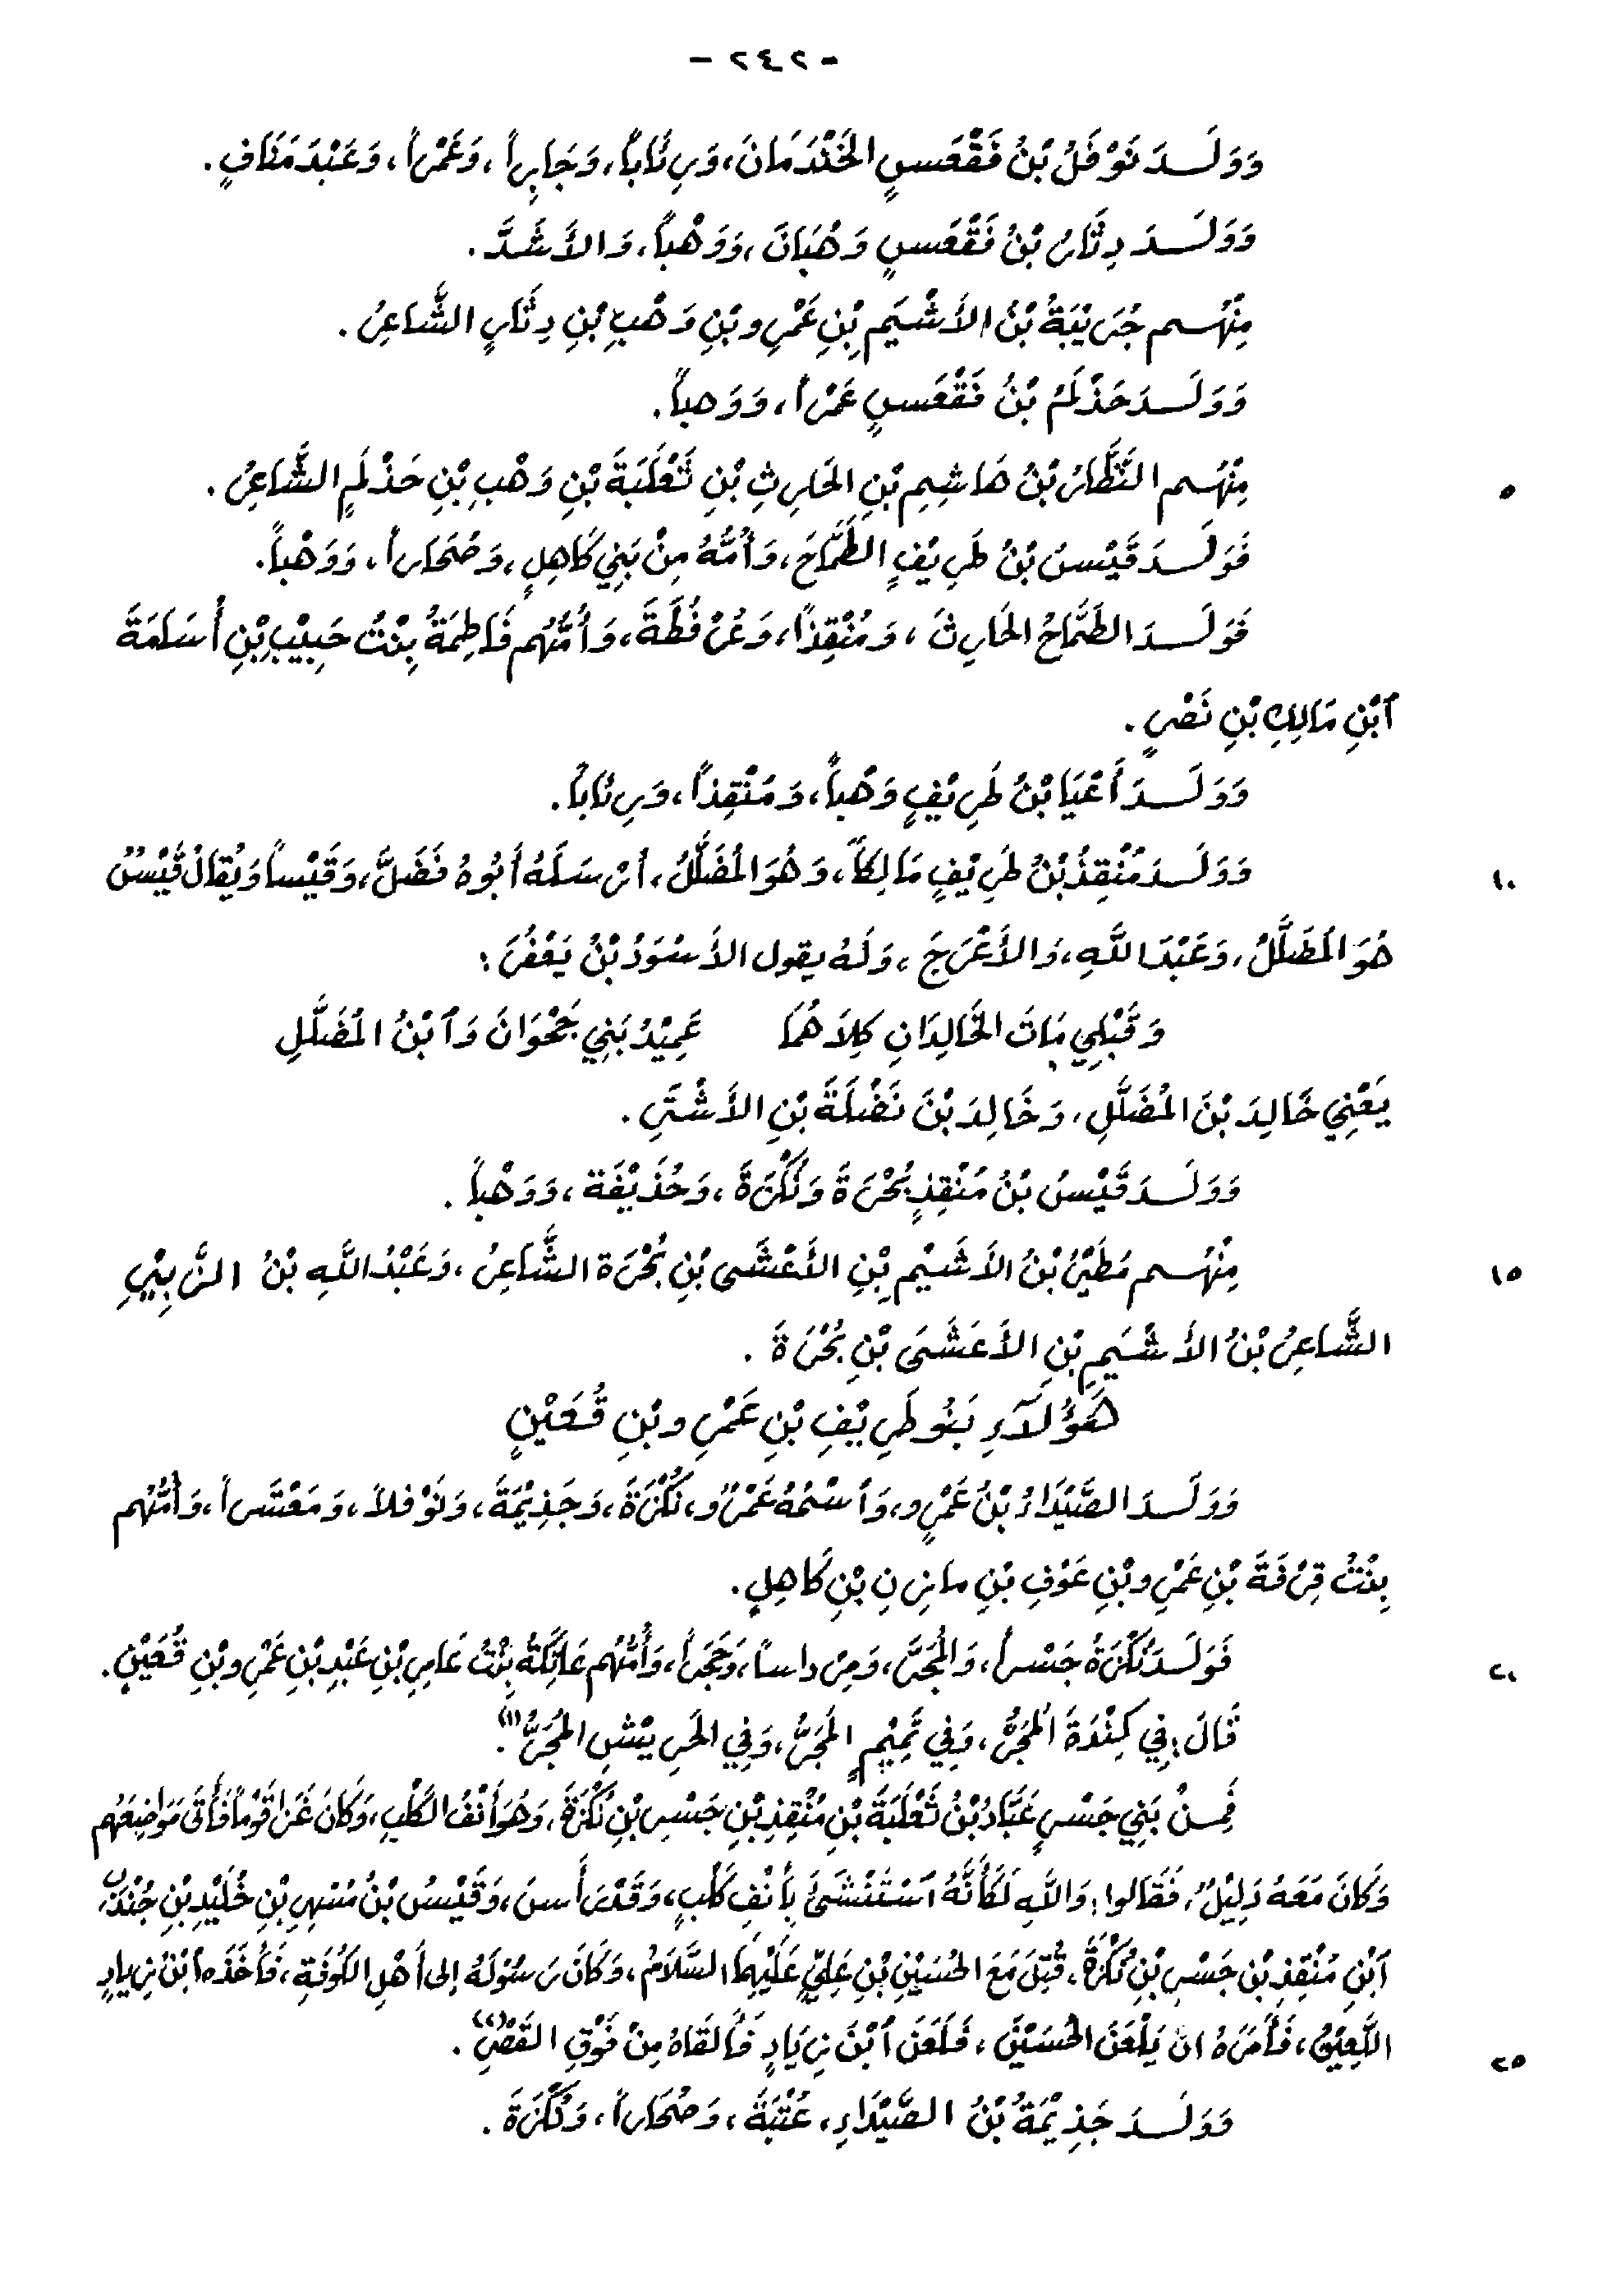 - ٢٤٢ -
وَوَلَدَ نَوْفَلُ بْنُ فَقْعَسٍ الخَنْدَمَانَ، وَرِئَاباً، وَجَابِراً، وَعَمْراً، وَعَبْدَ مَنَافٍ.
وَوَلَدَ دِثَارُ بْنُ فَقْعَسٍ وَهْبَانَ، وَوَهْباً، وَالأَشَدَّ.
مِنْهُم جُرَيْبَةُ بْنُ الأَشْيَمِ بْنِ عَمْرِو بْنِ وَهْبِ بْنِ دِثَارٍ الشَّاعِرُ.
وَوَلَدَ حَذْلَمُ بْنُ فَقْعَسٍ عَمْراً، وَوَهباً.
مِنْهُم النَّظَّارُ بْنُ هَاشِمِ بْنِ الحَارِثِ بْنِ ثَعْلَبَةَ بْنِ وَهْبِ بْنِ حَذْلَمٍ الشَّاعِرُ. ٥
فَوَلَدَ قَيْسُ بْنُ طَرِيْفٍ الطَّمَّاحَ، وَأُمُّهُ مِنْ بَنِي كَاهِلٍ، وَصُحَاراً، وَوَهْباً.
فَوَلَدَ الطَّمَّاحُ الحَارِثَ، وَمُنْقِذاً، وَعُرْفُطَةَ، وَأُمُّهُم فَاطِمَةُ بِنْتُ حَبِيْبِ بْنِ أُسَامَةَ
ٱبْنِ مَالِكِ بْنِ نَصْرٍ.
وَوَلَدَ أَعْيَا بْنُ طَرِيْفٍ وَهْباً، وَمُنْقِذاً، وَرِئَاباً.
وَوَلَدَ مُنْقِذُ بْنُ طَرِيْفٍ مَالِكاً، وَهُوَ المُضَلَّلُ، أرْسَلَهُ أبُوهُ فَضَلَّ، وَقَيْساً وَيُقَالُ قَيْسُ ١٠
هُوَ المُضَلَّلُ، وَعَبْدَ اللَّهِ، وَالأَعْرَجَ، وَلَهُ يقول الأَسْوَدُ بْنُ يَعْفُرَ:
وَقَبْلِي مَاتَ الخَالِدَانِ كِلاَهُمَا عَمِيْدُ بَنِي جَحْوَانَ وَٱبْنُ المُضَلَّلِ
يَعْنِي خَالِدَ بْنَ المُضَلَّلِ، وَخَالِدَ بْنَ نَضْلَةَ بْنِ الأَشْتَرِ.
وَوَلَدَ قَيْسُ بْنُ مُنْقِذٍ بُحْرَةَ وَنُكْرَةَ، وَحُذَيْفَة، وَوَهْباً.
مِنْهُم مُطَيْرُ بْنُ الأَشَيْمِ بْنِ الأَعْشَى بْنِ بُحْرَة الشَّاعِرُ، وَعَبْدُ اللَّهِ بْنُ الزَّبِيْرِ ١٥
الشَّاعِرُ بْنُ الأَشْيَمِ بْنِ الأَعَشَى بْنِ بُحْرَةَ.
هَؤُلَآءِ بَنُو طَرِيْفِ بْنِ عَمْرِو بْنِ قُعَيْنٍ
وَوَلَدَ الصَّيْدَاءُ بْنُ عَمْرٍو، وَٱسْمُهُ عَمْرٌو، نُكْرَةَ، وَجَذِيْمَةَ، وَنَوْفلاً، وَمَعْتَراً، وَأُمُّهُم
بِنْتُ قِرْفَةَ بْنِ عَمْرِو بْنِ عَوْفِ بْنِ مازِنِ بْنِ كَاهِلٍ.
فَوَلَدَ نُكْرَةُ جَسْراً، وَالمُجَرَّ، وَمِرداساً، وَحَجَراً، وَأُمُّهُم عَاتِكَةُ بِنْتُ عَامِرِ بْنِ عَبْدِ بْنِ عَمْرِو بْنِ قُعَيْنٍ. ٢٠
قَالَ: فِي كِنْدَةَ المُجَرُّ، وَفِي تَمِيْمٍ المُجَرُّ، وَفِي الحَرِيْشِ المُجَرُّ(١).
فَمِنْ بَنِي جَسْرٍ عَبَّادُ بْنُ ثَعْلَبَةَ بْنِ مُنْقِذِ بْنِ جَسْرِ بْنِ نُكْرَةَ، وَهُوَ أَنْفُ الكَلْبِ، وَكَانَ غَزَا قَوْماً فَأَتَى مَوَاضِعَهُم
وَكَانَ مَعَهُ دَلِيْلٌ، فَقَالوا: وَاللَّهِ لَكَأَنَّهُ ٱسْتَنْشَى بِأَنْفِ كَلْبٍ، وَقَدْ رَأَسَ، وَقَيْسُ بْنُ مُسْهِرِ بْنِ خُلَيْدِ بْنِ جُنْدَبِ
ٱبْنِ مُنْقِذِ بْنِ جَسْرِ بْنِ نُكْرَةَ، قُتِلَ مَعَ الحُسَيْنِ بْنِ عَلِيٍّ عَلَيْهِمَا السَّلاَمُ، وَكَانَ رَسُوْلَهُ إلى أَهْلِ الكُوفَةِ، فَأَخَذَه ٱبْنُ زِيادٍ
اللَّعِيْنُ، فَأَمَرَهُ انْ يَلْعَنَ الحُسَيْنَ، فَلَعَنَ ٱبْنَ زِيَادٍ فَألقَاهُ مِنْ فَوْقِ القَصْرِ(٢). ٢٥
وَوَلَدَ جَذِيْمَةُ بْنُ الصَّيْدَاءِ، عُتْبَةَ، وَصُحَاراً، وَنُكْرَةَ.